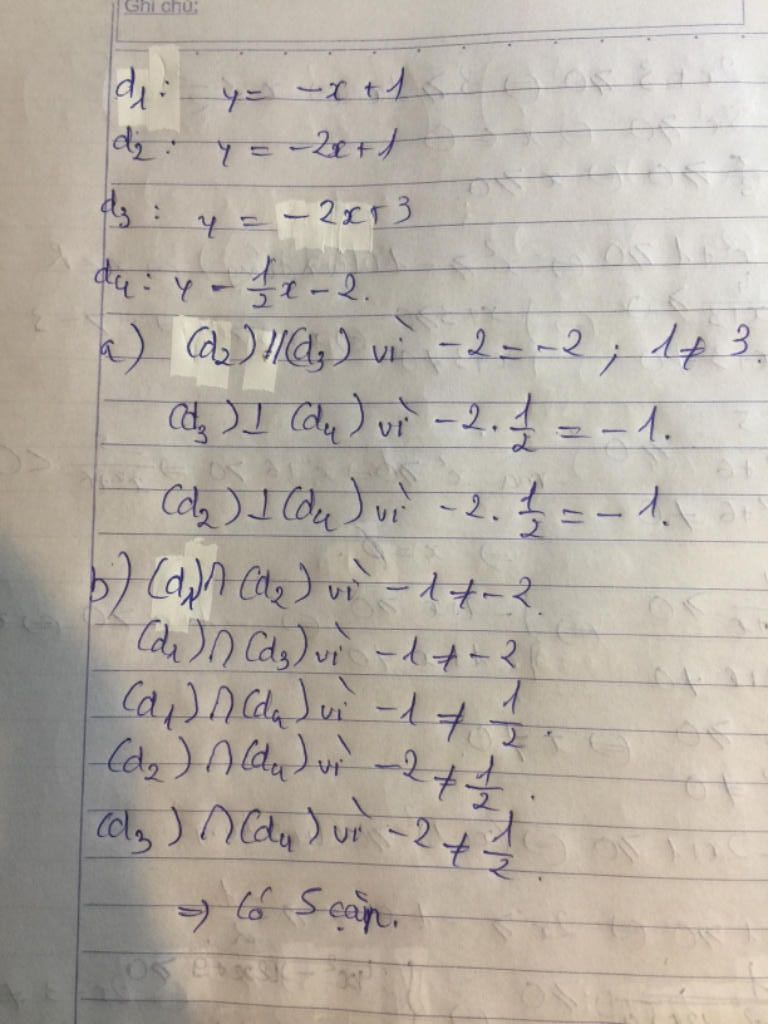 Ghi chú:
d1: y = -x + 1
d2: y = -2x + 1
d3: y = -2x + 3
d4: y - 1/2 x - 2.
a) (d2) // (d3) vì -2 = -2 ; 1 ≠ 3.
(d3) ⊥ (d4) vì -2 . 1/2 = -1.
(d2) ⊥ (d4) vì -2 . 1/2 = -1.
b) (d1) ∩ (d2) vì -1 ≠ -2.
(d1) ∩ (d3) vì -1 ≠ -2
(d1) ∩ (d4) vì -1 ≠ 1/2.
(d2) ∩ (d4) vì -2 ≠ 1/2.
(d3) ∩ (d4) vì -2 ≠ 1/2.
⇒ Có 5 cặp.